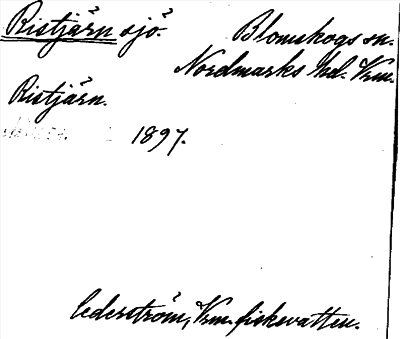 Ristjärn sjö. Blomskogs sn.
Nordmarks hd. Vrm.
Ristjärn.
1897.
Cederström, Vrm. fiskevatten.